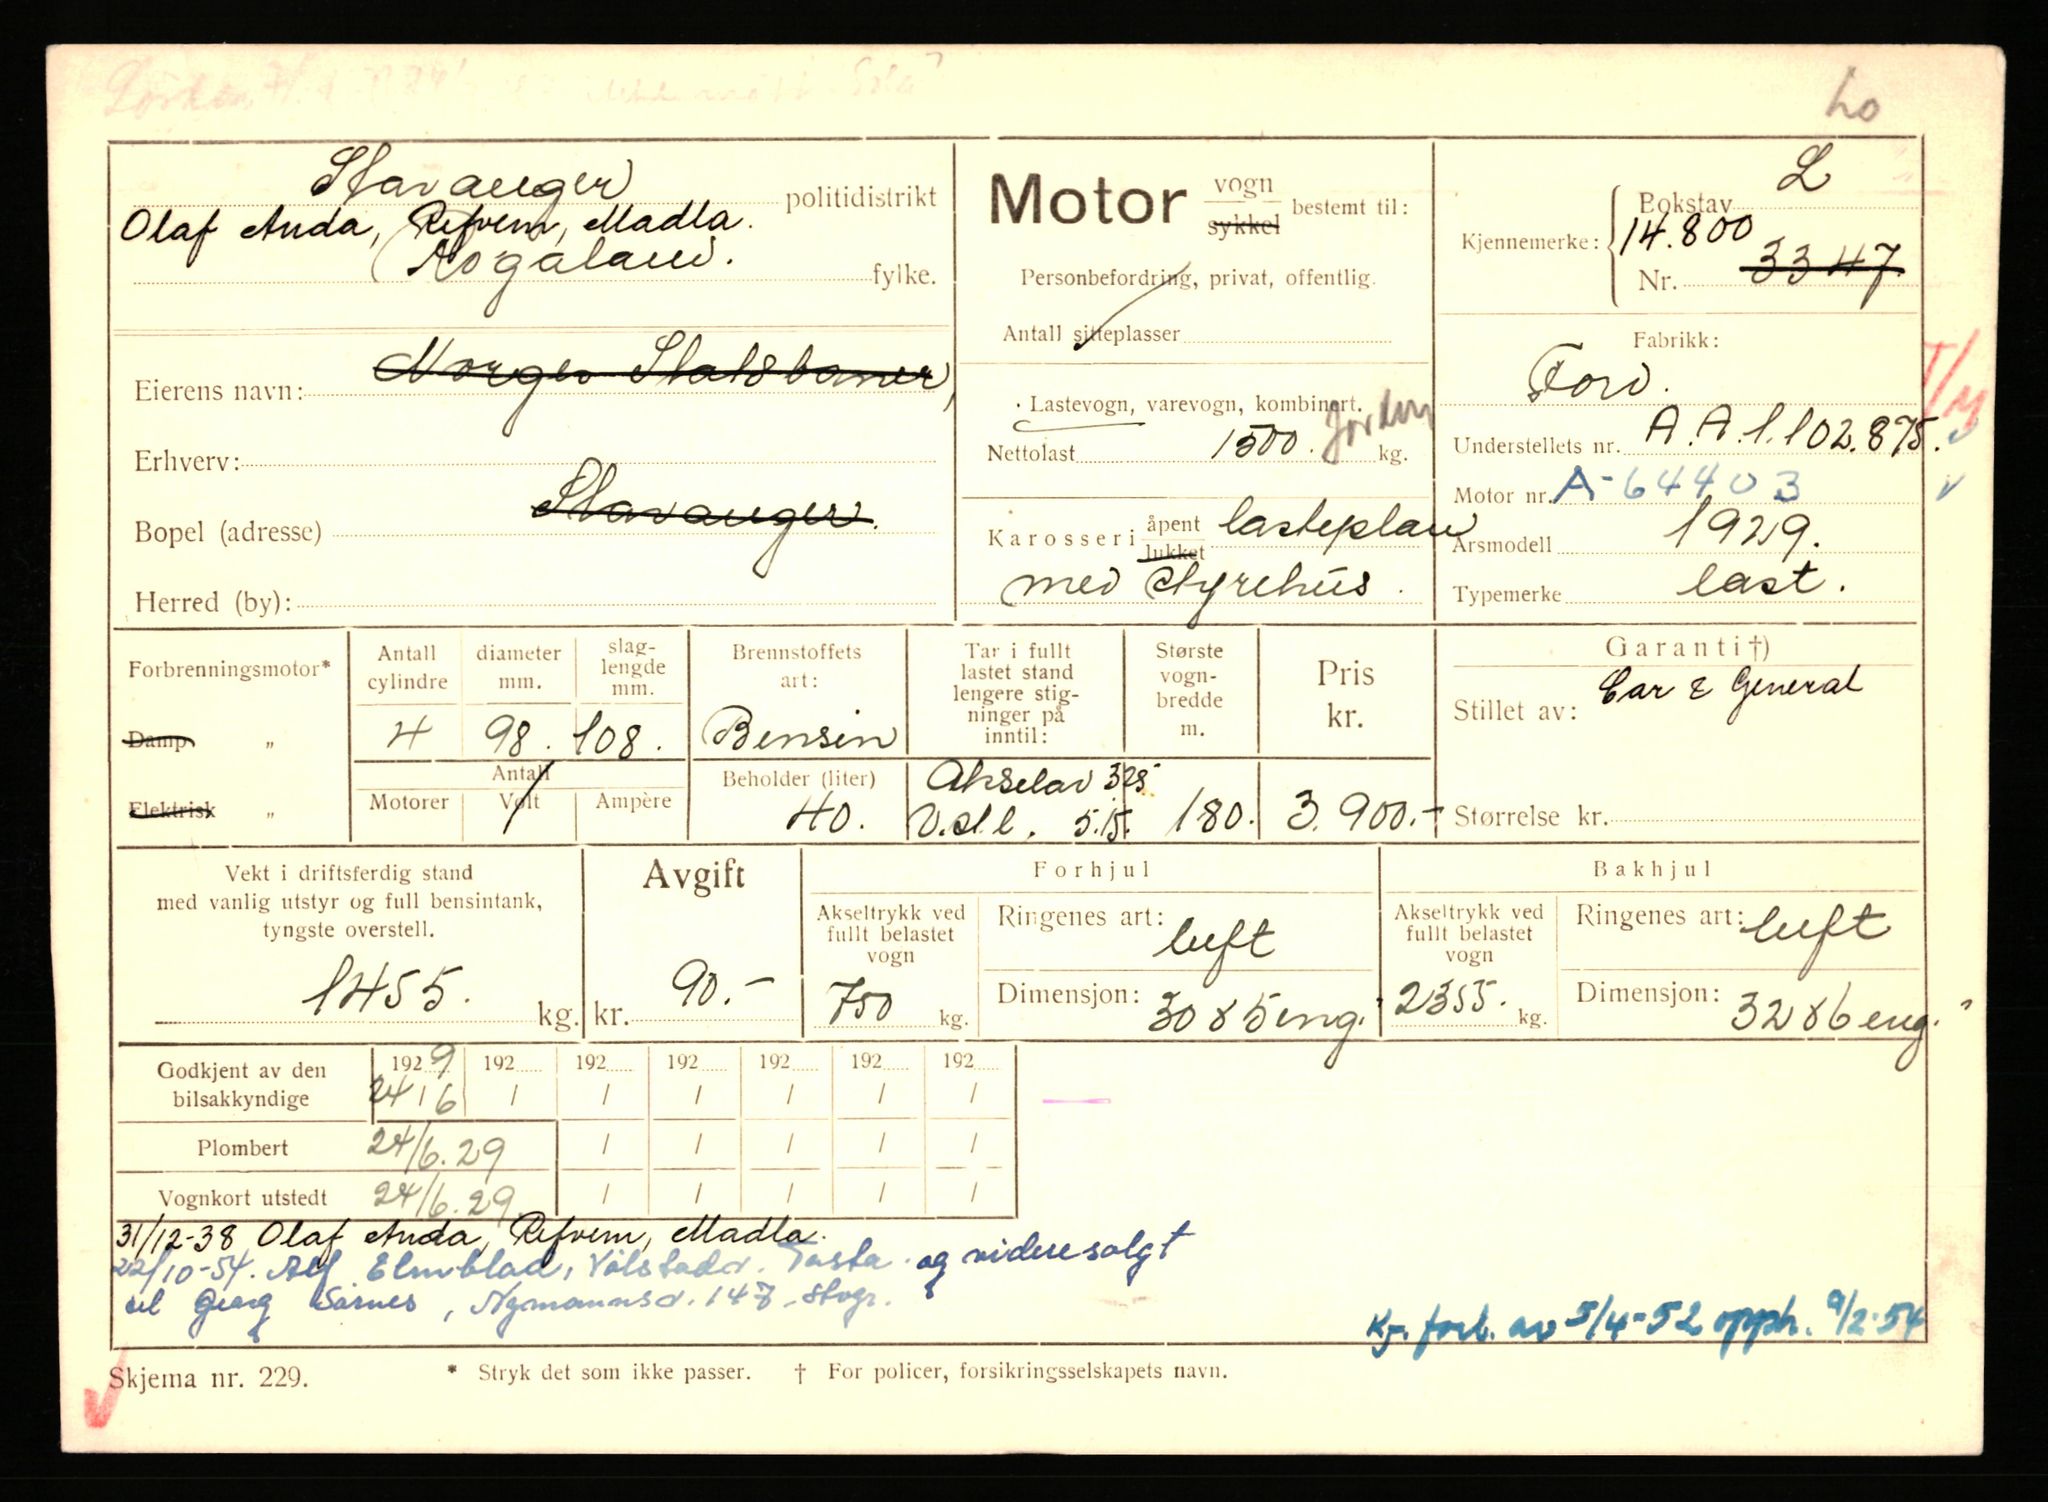 Lo
Stavanger politidistrikt
Olaf Anda, Refvem, Madla.
Rogaland. fylke.
Eierens navn: Norges Statsbaner,
Erhverv:
Bopel (adresse) Stavanger.
Herred (by):
Motor vogn sykkel bestemt til:
Personbefordring, privat, offentlig.
Antall sitteplasser
Lastevogn, varevogn, kombinert.
Nettolast 1500. kg.
Karosseri åpent lukket lasteplan
med styrehus.
Kjennemerke: Bokstav L
14.800
Nr. 3347
Fabrikk:
Ford.
Understellets nr. A.A.1.102.875.
Motor nr. A-64403
Årsmodell 1929.
Typemerke last.
T/M
Forbrenningsmotor*
Damp „
Elektrisk „
Antall cylindre
diameter mm.
slaglengde mm.
4 98. 108.
Antall
Motorer Volt Ampère
Brennstoffets art:
Bensin
Beholder (liter)
40.
Tar i fullt
lastet stand
lengere stig-
ninger på
inntil:
Akselav 3,25
V.st.l. 5.15.
Største
vogn-
bredde
m.
180.
Pris
kr.
3.900.-
Garanti†)
Stillet av: Car & General
Størrelse kr.
Vekt i driftsferdig stand
med vanlig utstyr og full bensintank,
tyngste overstell.
1455. kg.
Avgift
kr. 90.-
Forhjul
Akseltrykk ved
fullt belastet
vogn
750 kg.
Ringenes art: luft
Dimensjon: 30x5 eng."
Bakhjul
Akseltrykk ved
fullt belastet
vogn
2355. kg.
Ringenes art: luft
Dimensjon: 32x6 eng."
Godkjent av den
bilsakkyndige
1929 192 192 192 192 192 192
24/6 / / / / / /
Plombert 24/6.29 / / / / /
Vognkort utstedt 24/6.29. / / / / /
31/12-38 Olaf Anda, Refvem, Madla.
22/10-54. Alf Elmblad, Vålstadv. Tasta. og videresolgt
til Georg Sørnes, Nymannsv. 147. Stvgr.
Kj. forb. av 5/4-52 opph. 9/2-54
Skjema nr. 229.
* Stryk det som ikke passer. † For policer, forsikringsselskapets navn.